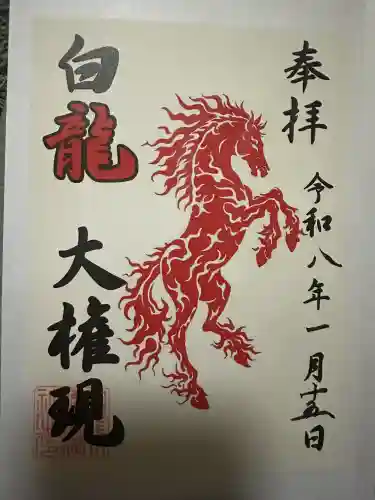 奉拝
令和八年一月十五日
白龍
大権現